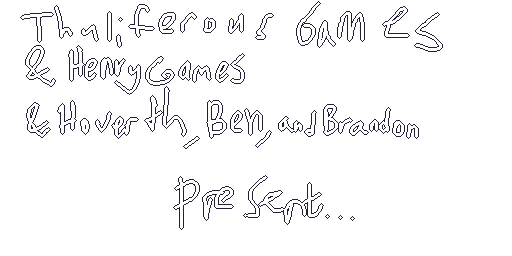 Thuliferous GAMES
& HenryGames
& Hoverth, Ben, and Brandon
Present...